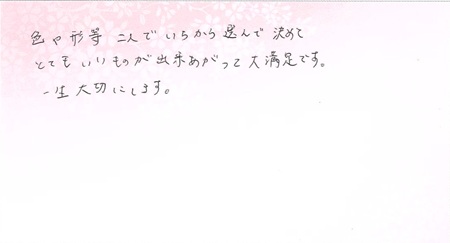 色や形等 二人でいちから選んで 決めて
とても いいものが出来あがって 大満足です。
一生 大切にします。